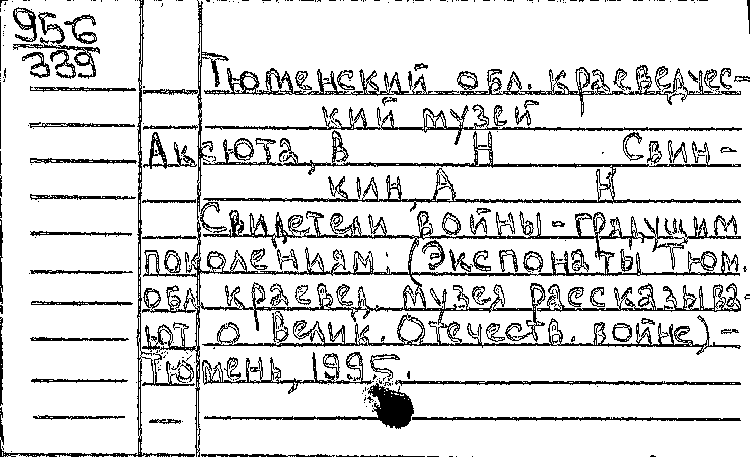 956
339
Тюменский обл. краеведчес-
кий музей
Аксюта, В Н Свин-
кин А Н
Свидетели войны - грядущим
поколениям: (Экспонаты Тюм.
обл. краевед. музея рассказыва-
ют о Велик. Отечеств. войне). -
Тюмень, 1995.